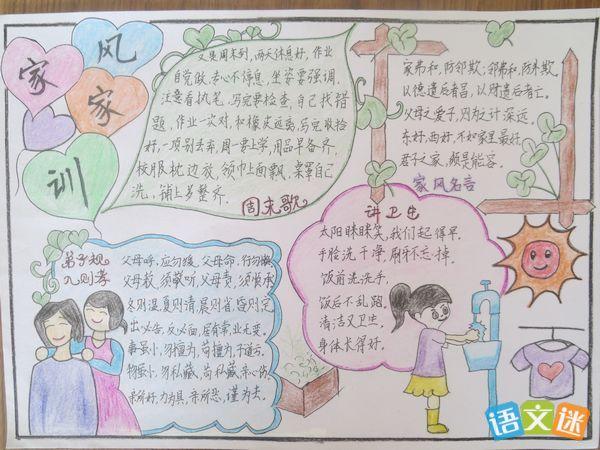 家风家训
又是周末到,两天休息好,作业
自觉做,专心不停息,坐姿要强调,
注意看执笔,写完要检查,自己找错
题,作业一次对,和橡皮远离,写完收拾
好,一项别丢弃,周一要上学,用品早备齐,
校服枕边放,领巾上面飘,桌罩自己
洗,铺上多整齐.
周末歌
家弗和,防邻欺,邻弗和,防外欺,
以德遗后者昌,以财遗后者亡.
父母之爱子,则为之计深远.
东好,西好,不如家里最好,
君子之家,颇是能容.
家风名言
讲卫生
太阳眯眯笑,我们起得早,
手脸洗干净,刷牙不忘掉.
饭前洗洗手,
饭后不乱跑.
清洁又卫生,
身体长得好.
弟子规
九则孝
父母呼,应勿缓,父母命,行勿懒
父母教,须敬听,父母责,须顺承
冬则温,夏则凊,晨则省,昏则定
出必告,反必面,居有常,业无变.
事虽小,勿擅为,苟擅为,子道亏.
物虽小,勿私藏,苟私藏,亲心伤
亲所好,力为具,亲所恶,谨为去.
语文迷